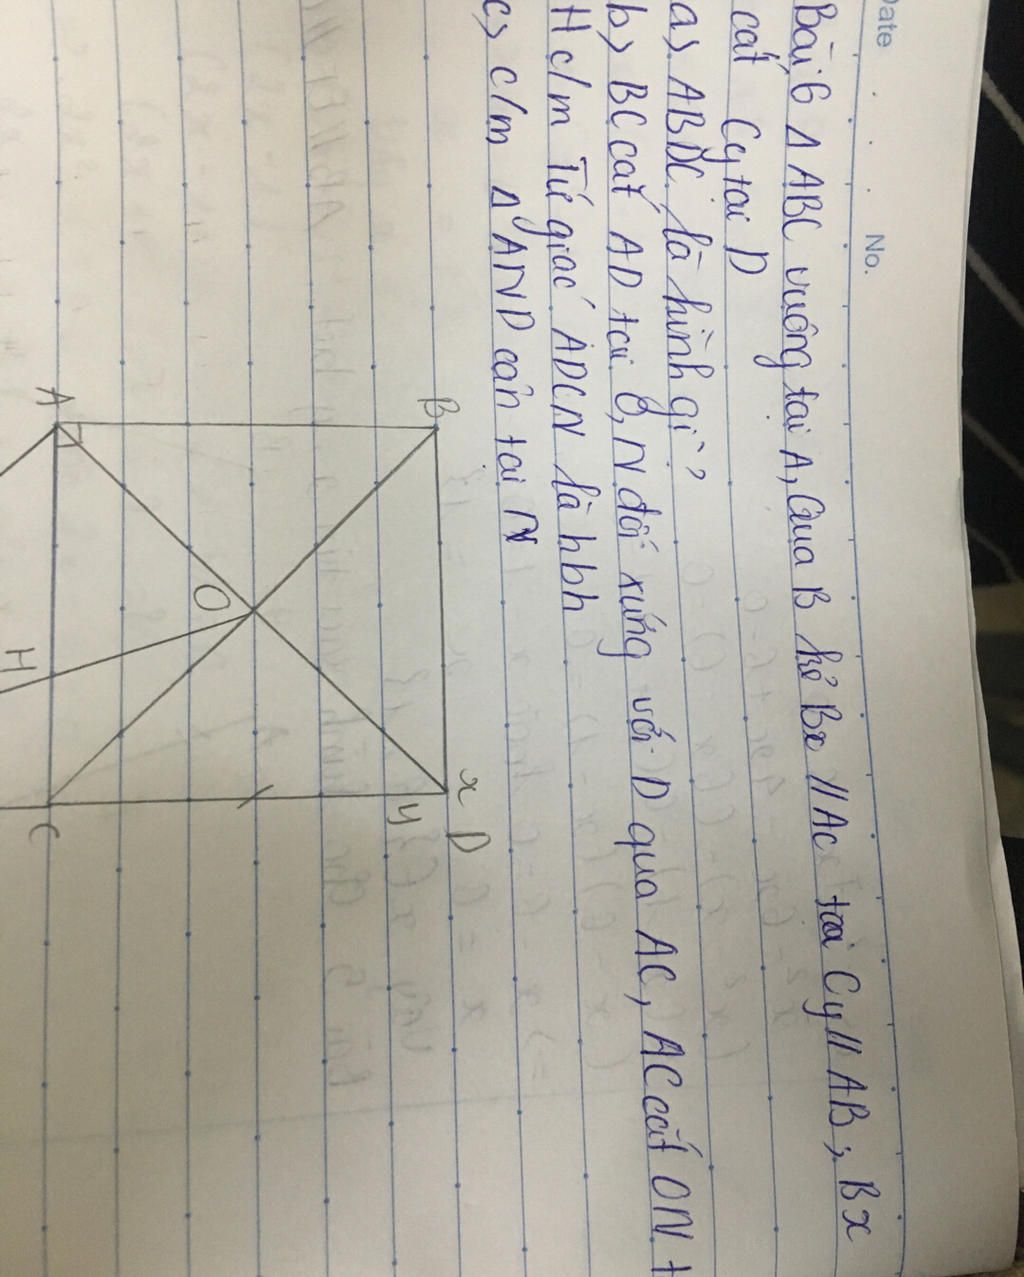 Date
No.
Bài 6 Δ ABC vuông tại A, Qua B kẻ Bx // AC tại Cy // AB; Bx
cắt Cy tại D
a> ABDC là hình gì?
b> BC cắt AD tại O, N đối xứng với D qua AC, AC cắt ON t
H c/m Tứ giác ADCN là hbh
c> c/m Δ AND cân tại N
B
x
D
y
O
A
H
C